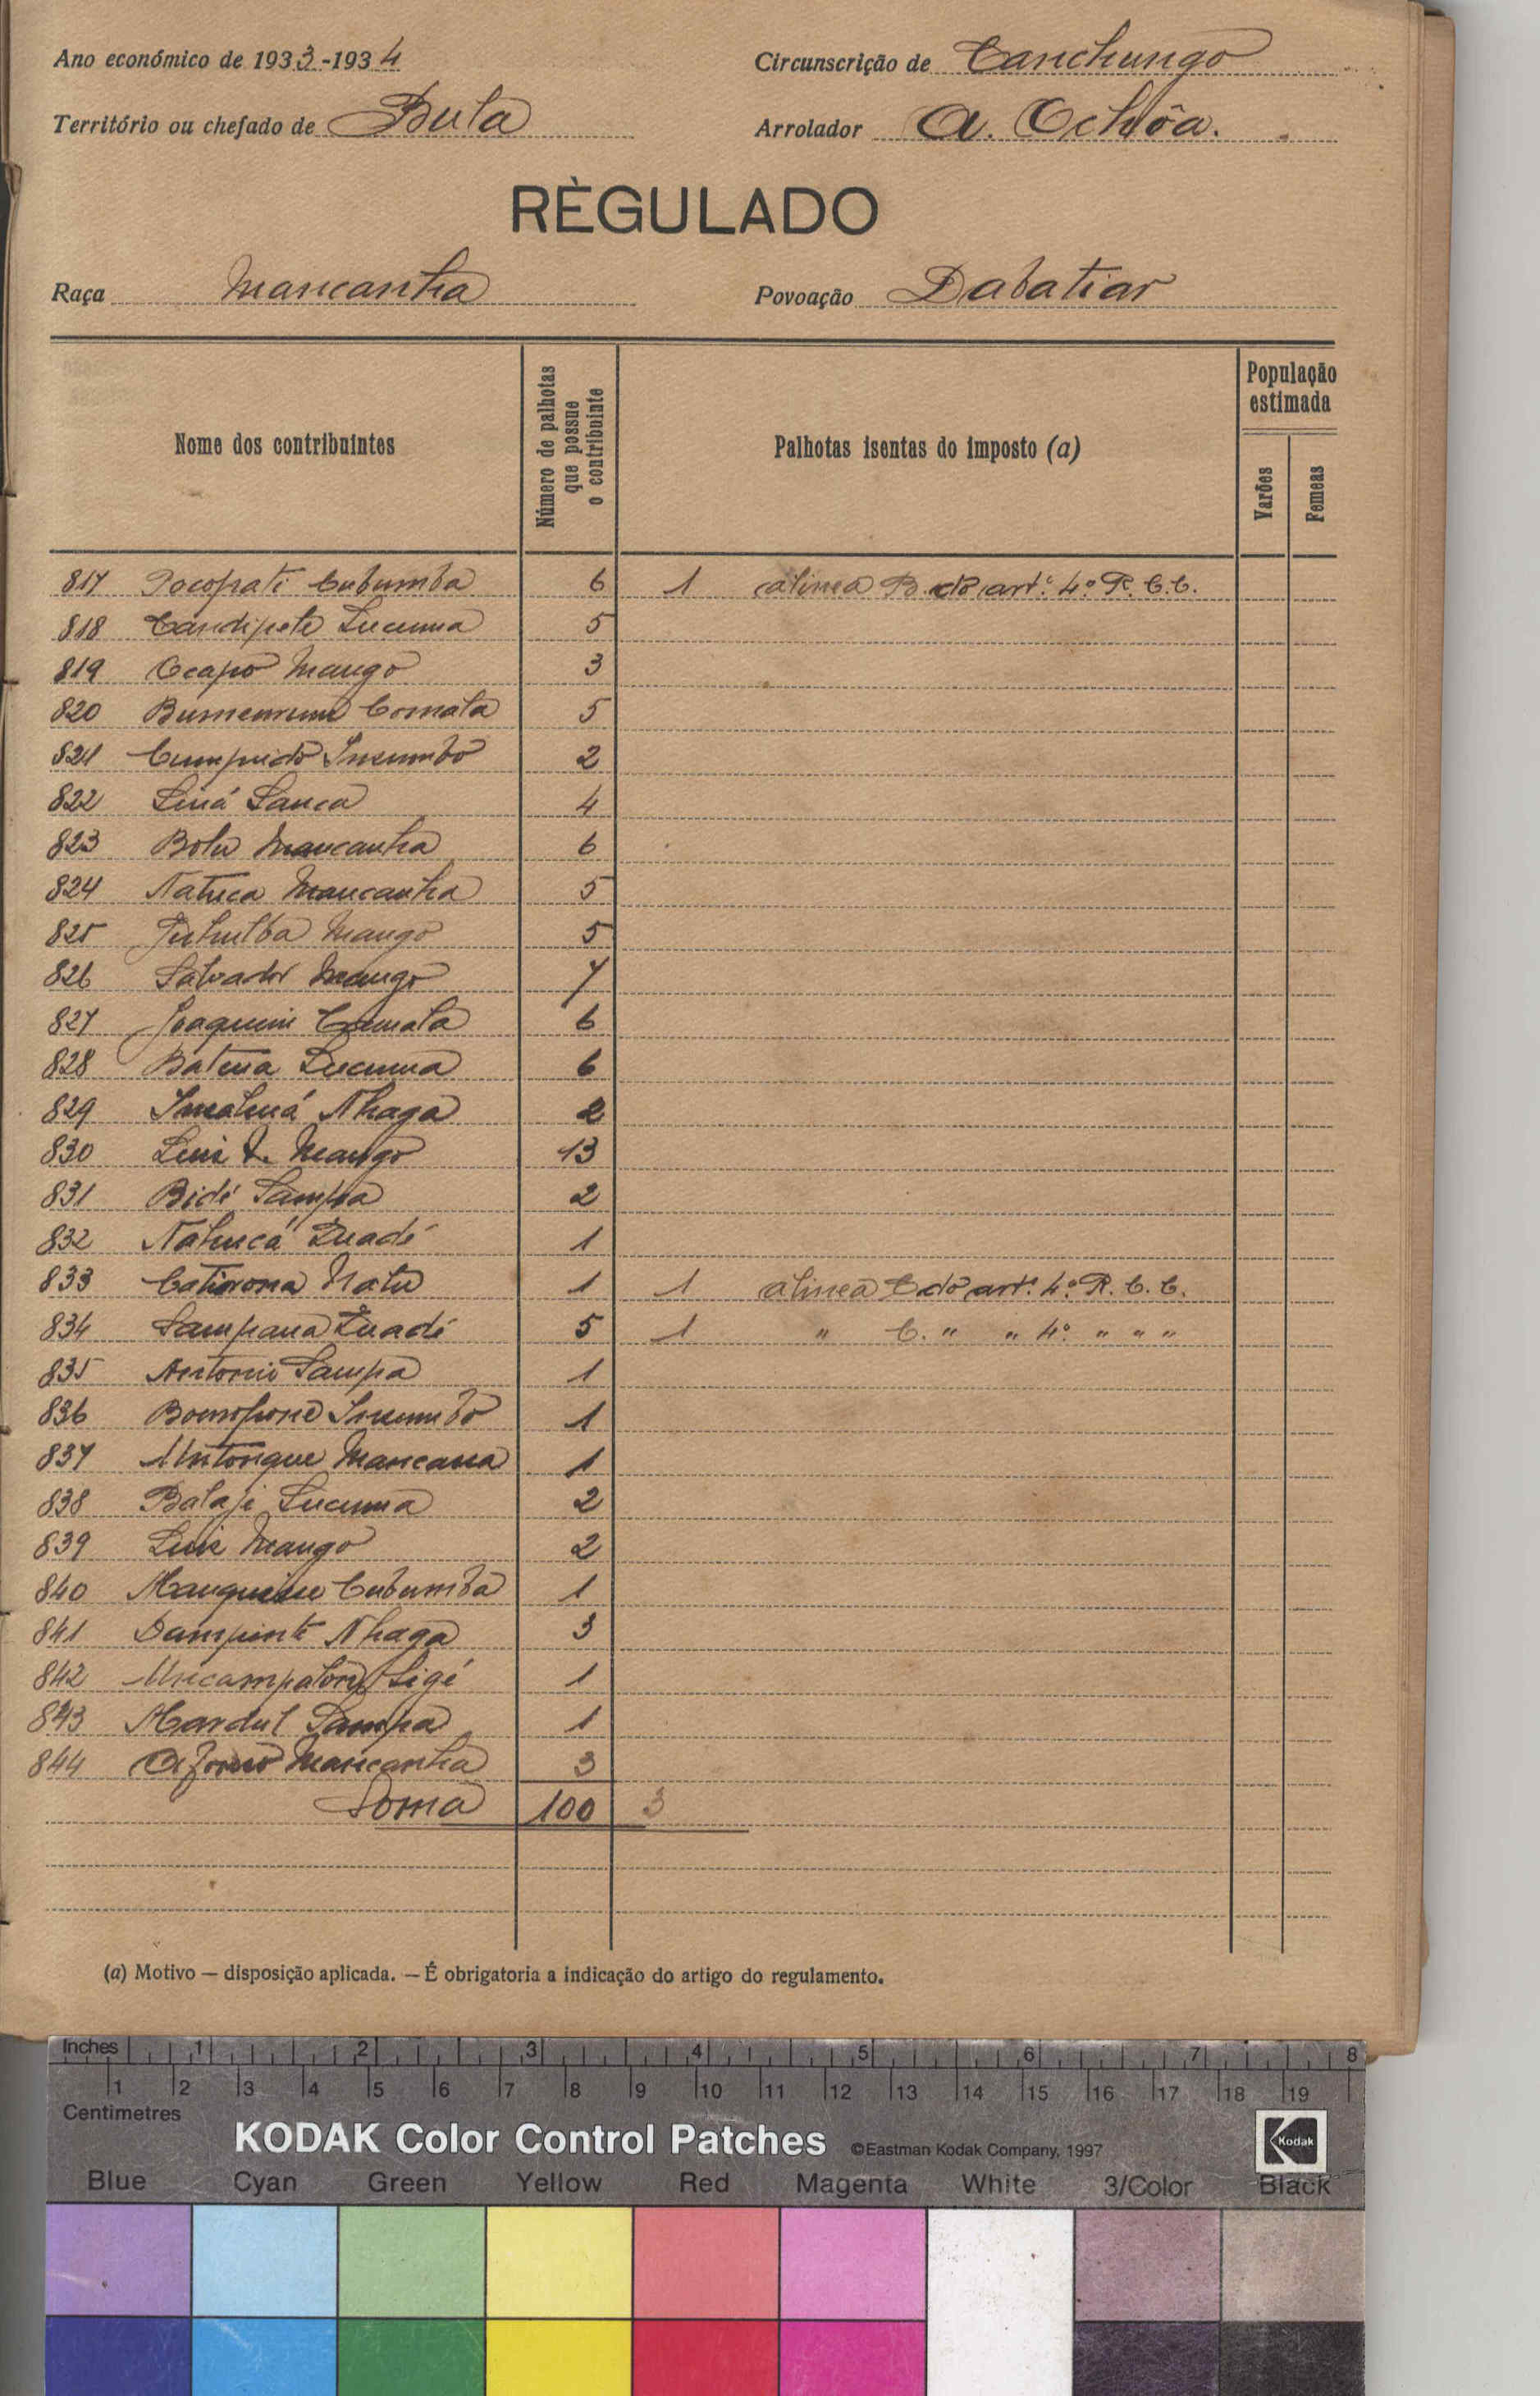 Ano económico de 1933-1934
Circunscrição de Canchungo
Território ou chefado de Bula
Arrolador A. Ochôa.
RÈGULADO
Raça Mancanha
Povoação Dabatiar
Nome dos contribuintes
Número de palhotas que possue o contribuinte
Palhotas isentas do imposto (a)
População estimada
Varões
Femeas
817 Cubumba 6 1 alinea B. do art.º 4.º R. C. C.
818 Candipete Lucuma 5
819 Ocapo Mango 3
820 Comata 5
821 Cumprido Insumbo 2
822 Liná Sanca 4
823 Bolu Mancanha 6
824 Natuca Mancanha 5
825 Mango 5
826 Salvador Mango 7
827 Joaquim Comata 6
828 Batena Lucuma 6
829 Nhaga 2
830 Luis Mango 13
831 Bidé Sampa 2
832 Natucá 1
833 Natu 1 1 alinea C do art.º 4.º R. C. C.
834 Sampana 5 1 " C. " " 4.º " " "
835 Antonio Sampa 1
836 Insumbo 1
837 1
838 Balaji Lucuma 2
839 Luis Mango 2
840 Cubumba 1
841 Nhaga 3
842 Ligé 1
843 Sampa 1
844 Mancanha 3
Soma 100 3
(a) Motivo — disposição aplicada. — É obrigatoria a indicação do artigo do regulamento.
Inches 1 2 3 4 5 6 7 8
1 2 3 4 5 6 7 8 9 10 11 12 13 14 15 16 17 18 19
Centimetres
KODAK Color Control Patches ©Eastman Kodak Company, 1997 Kodak
Blue Cyan Green Yellow Red Magenta White 3/Color Black